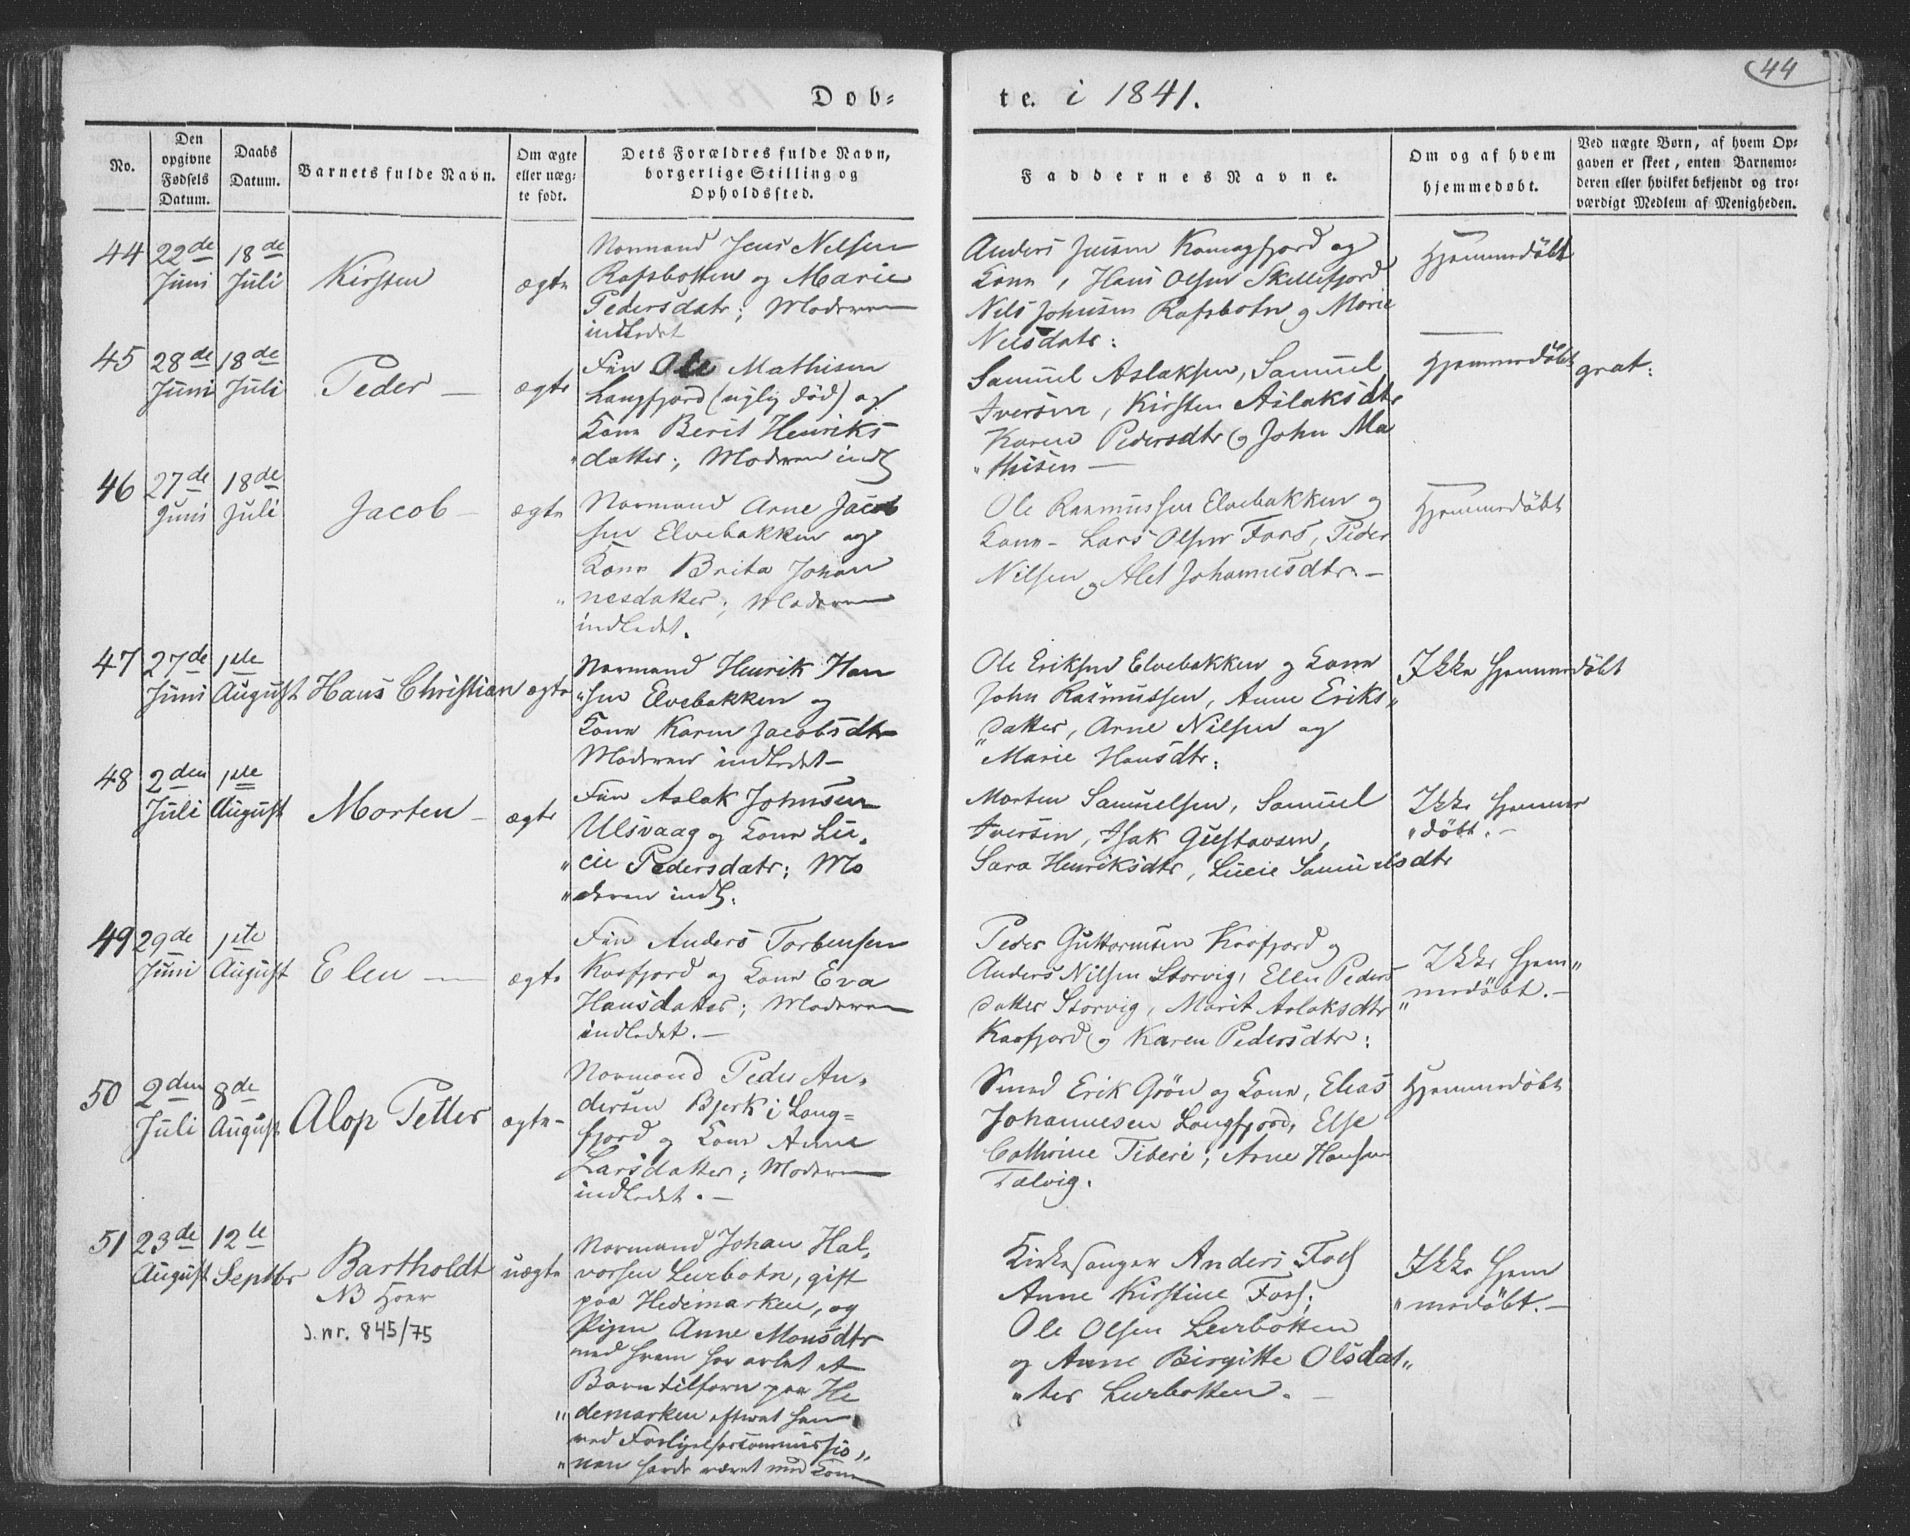 44
Døb=
te. i 1841.
No.
Den opgivne Fødsels Datum.
Daabs Datum.
Barnets fulde Navn.
Om ægte eller uæg-te født.
Dets Forældres fulde Navn, borgerlige Stilling og Opholdssted.
Faddernes Navne.
Om og af hvem hjemmedøbt.
Ved uægte Børn, af hvem Op-gaven er skeet, enten Barnemo-deren eller hvilket bekjendt og tro-værdigt Medlem af Menigheden.
44
22de Juni
18de Juli
Kirsten
ægte
Normand Jens Nilsen
Rafsbotten og Marie
Pedersdatr; Moderen
indledet
Anders Jensen Komagfjord og
Kone, Hans Olsen Skillefjord
Nils Johnsen Rafsbotn og Marie
Nilsdatr:
Hjemmedöbt
45
28de Juni
18de Juli
Peder —
ægte
Fin Ole Mathisen
Langfjord (nylig död) og
Kone Berit Henriks
"datter; Moderen indl
Samuel Aslaksen, Samuel
Iversen, Kirsten Aslaksdtr
Karen Pedersdtr og John Ma
"thisen —
Hjemmedöbt
grat:
46
27de Juni
18de Juli
Jacob —
ægte
Normand Arne Jacob
sen Elvebakken og
Kone Brita Johan
"nesdatter; Moderen
indledet.
Ole Rasmussen Elvebakken og
Kone – Lars Olsen Fors, Peder
Nilsen og Alet Johannesdtr. –
Hjemmedöbt
47
27de Juni
1ste August
Hans Christian
ægte
Normand Henrik Han
"sen Elvebakken og
Kone Karen Jacobsdtr
Moderen indledet –
Ole Eriksen Elvebakken og Kone
John Rasmussen, Anne Eriks"
"datter, Arne Nilsen og
Marie Hansdtr:
Ikke hjemmedöbt
48
2den Juli
1ste August
Morten –
ægte
Fin Aslak Johnsen
Ulsvaag og Kone Lu"
"cie Pedersdatr; Mo
"deren indl.
Morten Samuelsen, Samuel
Iversen, Isak Gustavsen,
Sara Henriksdtr, Lucie Samuelsdtr
Ikke hjemme
"döbt. –
49
29de Juni
1ste August
Elen —
ægte
Fin Anders Torbensen
Kaafjord og Kone Eva
Hansdatter; Moderen
indledet. –
Peder Guttormsen Kaafjord og
Anders Nilsen Storvig, Ellen Peders
datter Storvig, Marit Aslaksdtr
Kaafjord og Karen Pedersdtr:
Ikke hjem"
"medöbt. –
50
2den Juli
8de August
Alop Petter
ægte –
Normand Peder An"
dersen Bjerk i Lang=
fjord og Kone Anne
Larsdatter; Moderen
indledet. –
Smed Erik Grön og Kone, Elias
Johannesen Langfjord, Else
Cathrine Tiberi; Arne Hansen
Talvig.
Hjemmedöbt
51
23de August
12te Septbr
Bartholdt
NB Hoer
J.nr. 845/75
uægte
Normand Johan Hal"
vorsen Leirbotn, gift
paa Hedemarken, og
Pigen Anne Monsdtr
med hvem har avlet et
Barn tilforn paa He
"demarken efterat han
ved Forligelsescommissio"
"nen havde været med Kone
Kirkesanger Anders Foss
Anne Kirstine Foss;
Ole Olsen Leirbotten
og Anne Birgitte Olsdat"
"ter Leirbotten. –
Ikke hjem
"medöbt. –